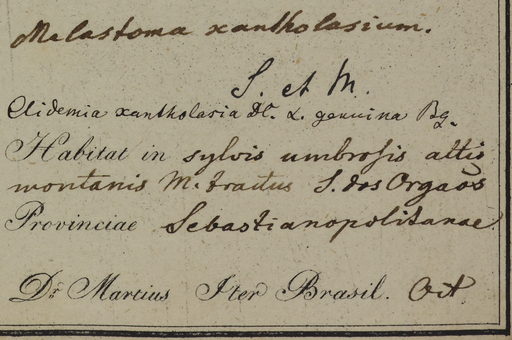 Melastoma xantholasium.
S. et M.
Clidemia xantholasia DC. α. genuina Bg.
Habitat in sylvis umbrosis altis
montanis M. tractus S. dos Orgaõs
Provinciae Sebastianopolitanae.
Dr. Martius Iter Brasil. Oct.